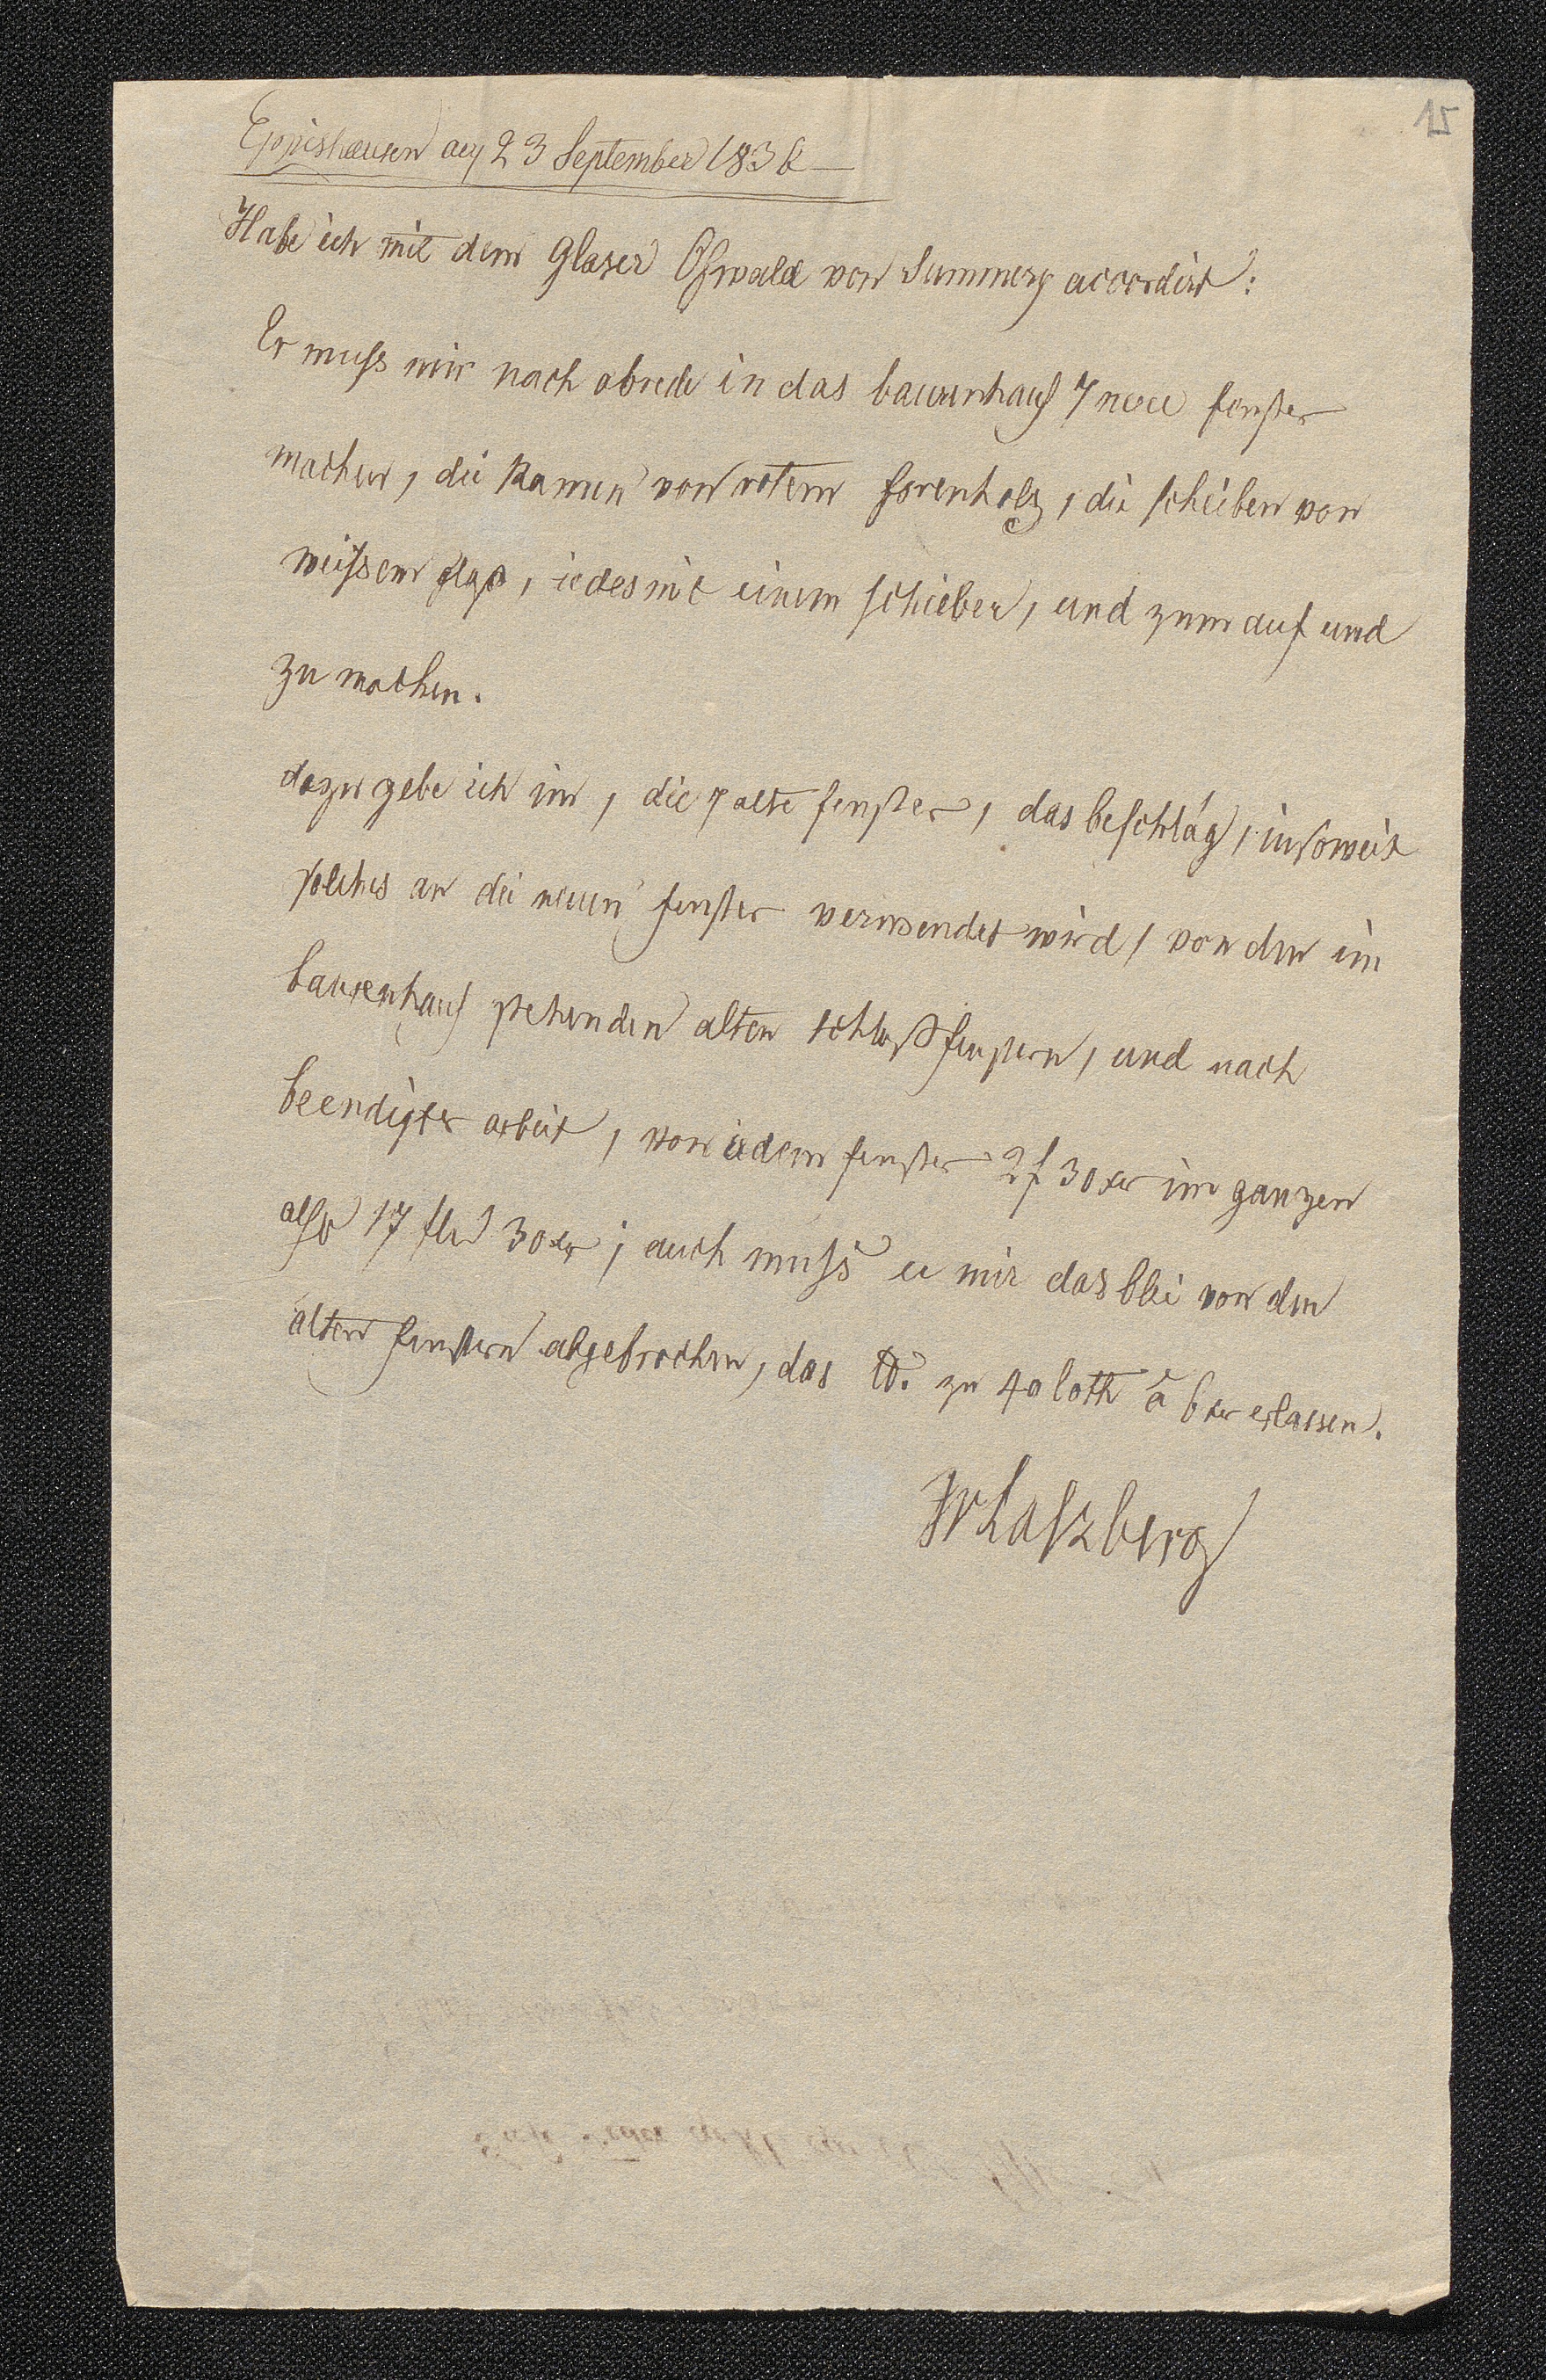 15
Eppishausen am 23 September 1836 —
Habe ich mit dem Glaser Oswald von Summery accordirt:
Er muss mir nach abrede in das baurenhaus 7 neue fenster
machen, die Ramen von rotem forenholz, die scheiben von
weissem glas, iedes mit einem schieber, und zum auf und
zu machen.
dazu gebe ich im, die 7 alte fenster, das beschläg, insoweit
solches an die neuen fenster verwendet wird, von den im
baurenhaus stehenden alten schloßfenstern, und nach
beendigter arbeit, von iedem fenster 2 f 30 xr im ganzen
also 17 fl 30 xr; auch muss er mir das blei von den
alten fenstern abgebrochen, das ℔. zu 40 loth à 6 xr erlassen.
JvLaszberg